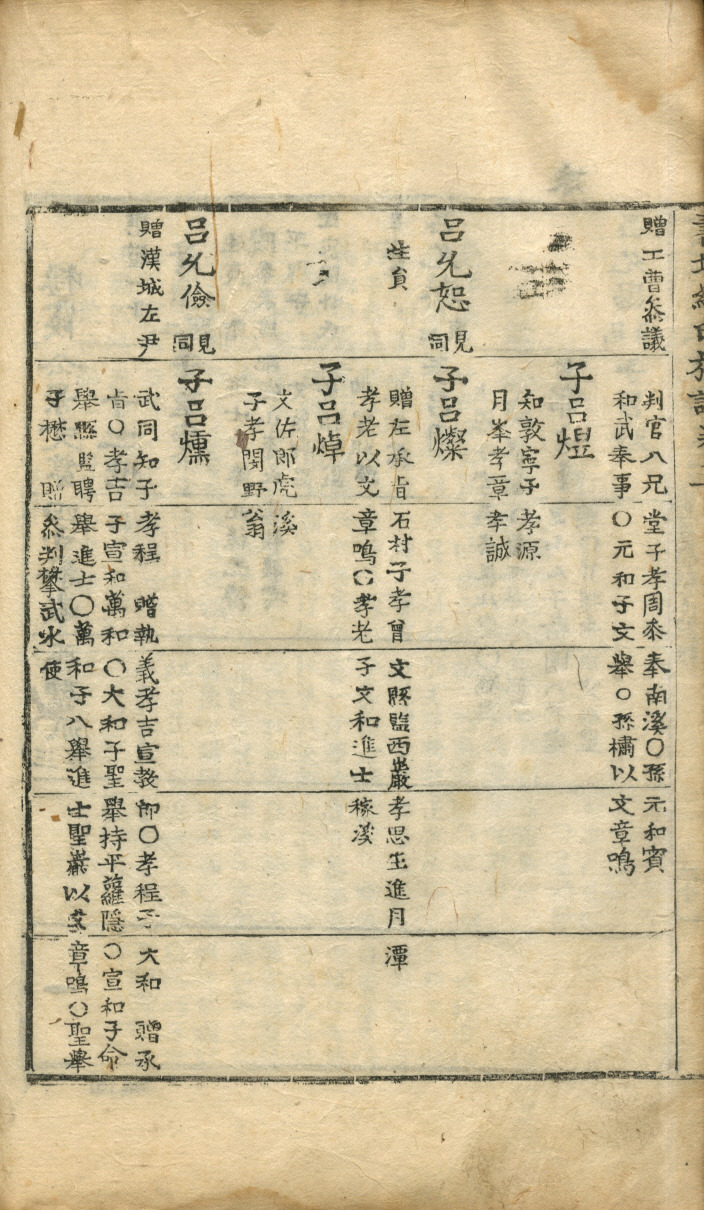 贈工曹叅議
判官八兄堂子孝周泰奉南溪〇孫元和賓
和武奉事〇元和子文舉〇孫橚以文章鳴
子呂煜
知敦寧子孝源
月峯孝章孝誠
呂允恕見同
子呂燦
生員
贈左承旨石村子孝曾文縣監西巖孝思生進月潭
孝老以文章鳴〇孝老子文和進士稼溪
子呂焯
文佐郎虎溪
子孝閔野翁
呂允儉見同
子呂燻
贈漢城左尹
武同知子孝程贈執義孝吉宣教郎〇孝程子大和贈承
旨〇孝吉子宣和萬和〇大和子聖舉持平蘿隱〇宣和子命
舉縣監聘舉進士〇萬和子八舉進士聖巖以文章鳴〇聖舉
子懋贈叅判攀武水使